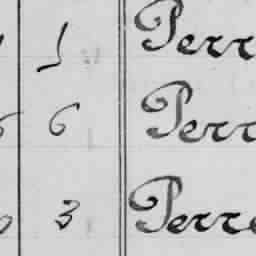 1 Perr
6 6 Perr
3 Perre